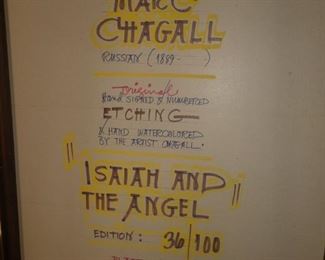 MARC
CHAGALL
RUSSIAN (1889-     )
original
HAND SIGNED & NUMBERED
ETCHING
& HAND WATERCOLORED
BY THE ARTIST CHAGALL.
"ISAIAH AND
THE ANGEL"
EDITION: 36/100